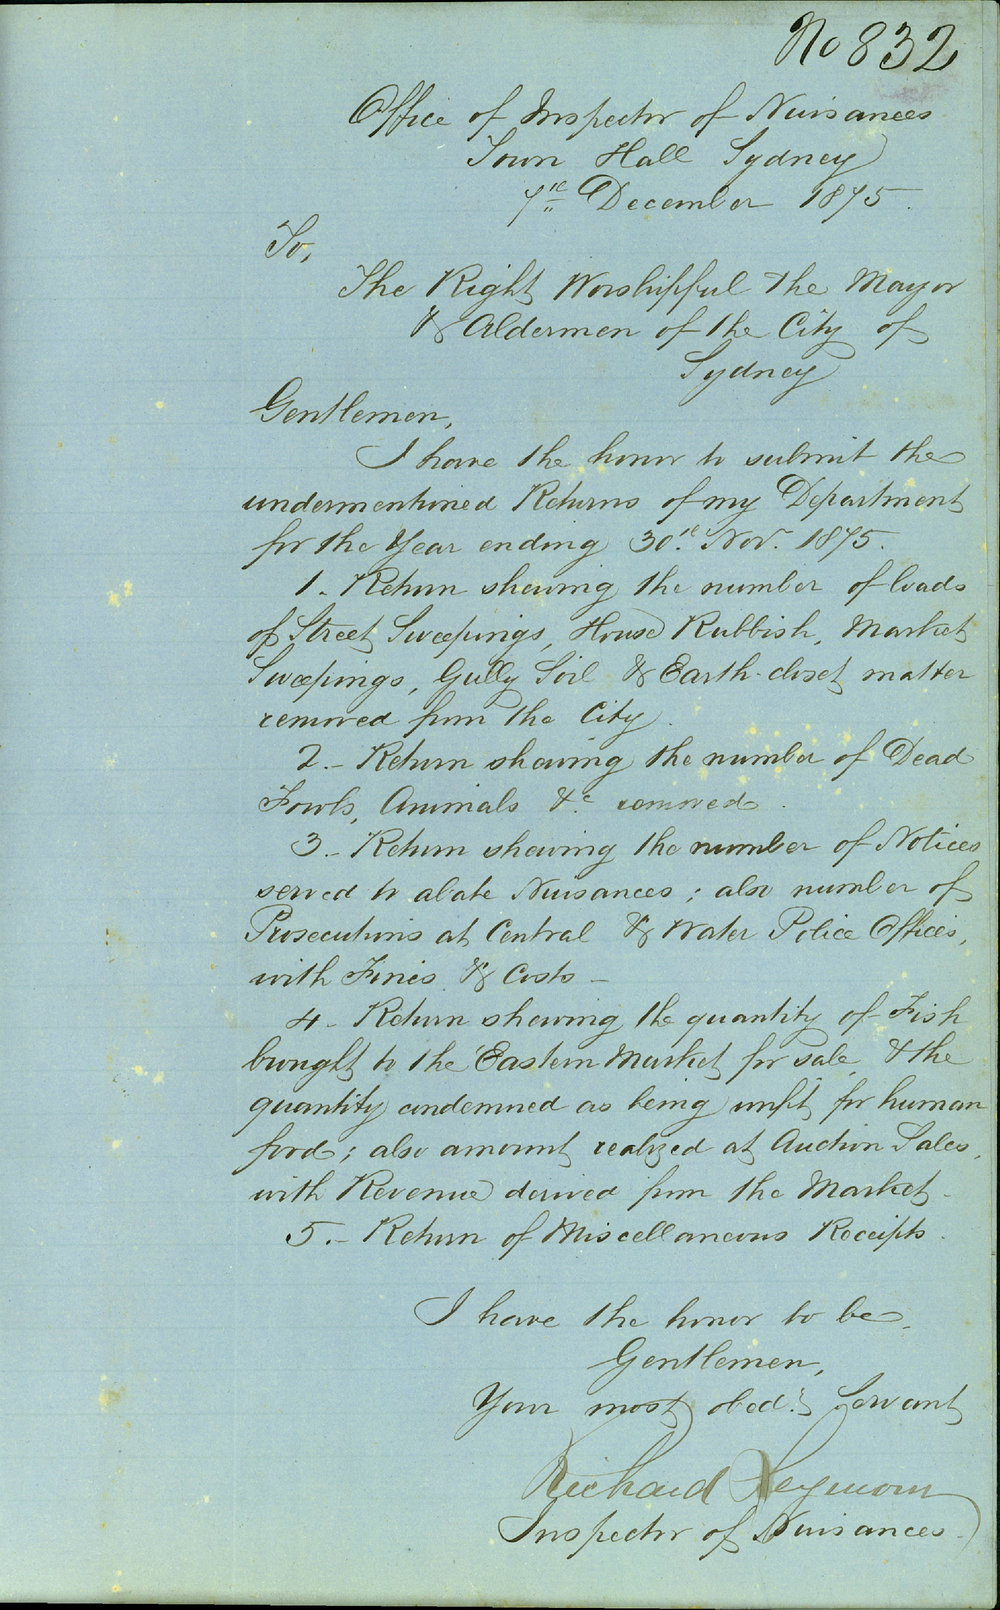 No 832
Office of Inspector of Nuisances
Town Hall Sydney
7th December 1875.
To,
The Right Worshipful the Mayor
& Aldermen of the City of
Sydney
Gentlemen,
I have the honor to submit the
undermentioned Returns of my Department
for the Year ending 30th Nov. 1875.
1. Return shewing the number of loads
of Street Sweepings, House Rubbish, Market
Sweepings, Gully Soil & Earth-closet matter
removed from the City.
2. - Return shewing the number of Dead
Fowls, Animals &c removed.
3. - Return shewing the number of Notices
served to abate Nuisances; also number of
Prosecutions at Central & Water Police Offices,
with Fines & Costs -
4 - Return shewing the quantity of Fish
brought to the Eastern Market for sale & the
quantity condemned as being unfit for human
food; also amount realized at Auction Sales,
with Revenue derived from the Market -
5. - Return of Miscellaneous Receipts.
I have the honor to be,
Gentlemen,
Your most obedt. Servant
Richard Seymour
Inspector of Nuisances.